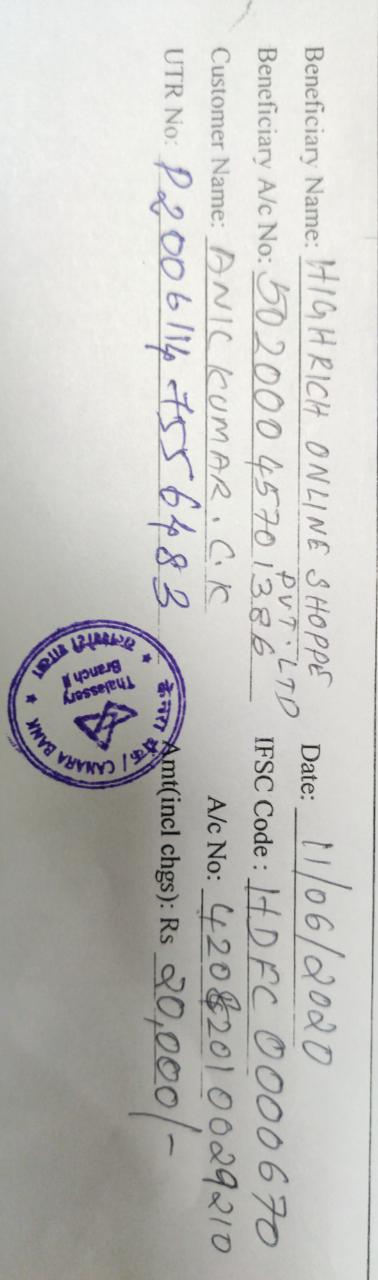 Beneficiary Name: HIGHRICH ONLINE SHOPPE PVT. LTD
Date: 11/06/2020
Beneficiary A/c No: 50200045701386
IFSC Code : HDFC 0000670
Customer Name: ANIL KUMAR . C. K
A/c No: 4208201 0029210
UTR No: P2006114 7556483
Amt(incl chgs): Rs 20,000/-
केनरा बैंक / CANARA BANK
Thalassery
Branch II